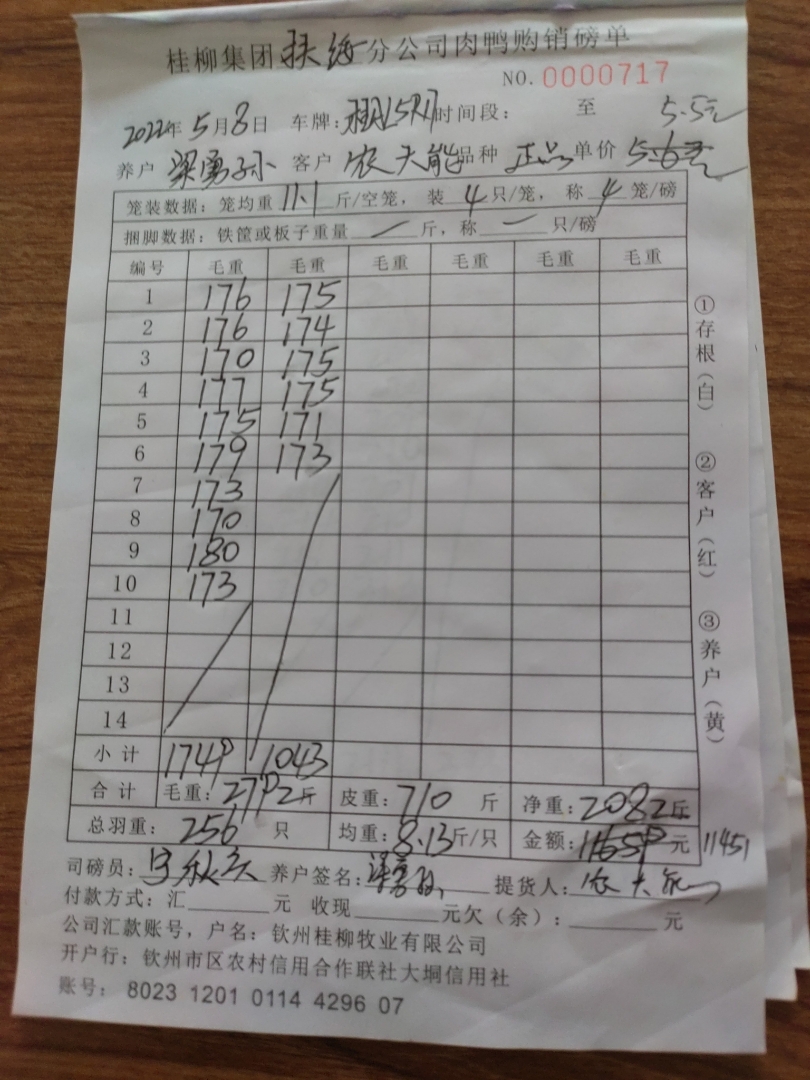 桂柳集团扶绥分公司肉鸭购销磅单
NO. 0000717
2022年 5月 8日 车牌: 时间段: 至 5.5元
养户 梁勇孙 客户 农大能 品种 正品 单价 5.6元
笼装数据: 笼均重 11.1 斤/空笼, 装 4 只/笼, 称 4 笼/磅
捆脚数据: 铁筐或板子重量 一 斤, 称 一 只/磅
编号 毛重 毛重 毛重 毛重 毛重 毛重
1 176 175
2 176 174
3 170 175
4 177 175
5 175 171
6 179 173
7 173
8 170
9 180
10 173
11
12
13
14
小计 1749 1043
合计 毛重: 2792斤 皮重: 710 斤 净重: 2082斤
总羽重: 256 只 均重: 8.13斤/只 金额: 11659 元 11451
司磅员: 养户签名: 提货人: 农大能
付款方式: 汇 元 收现 元欠(余): 元
公司汇款账号, 户名: 钦州桂柳牧业有限公司
开户行: 钦州市区农村信用合作联社大垌信用社
账号: 8023 1201 0114 4296 07
①存根(白) ②客户(红) ③养户(黄)